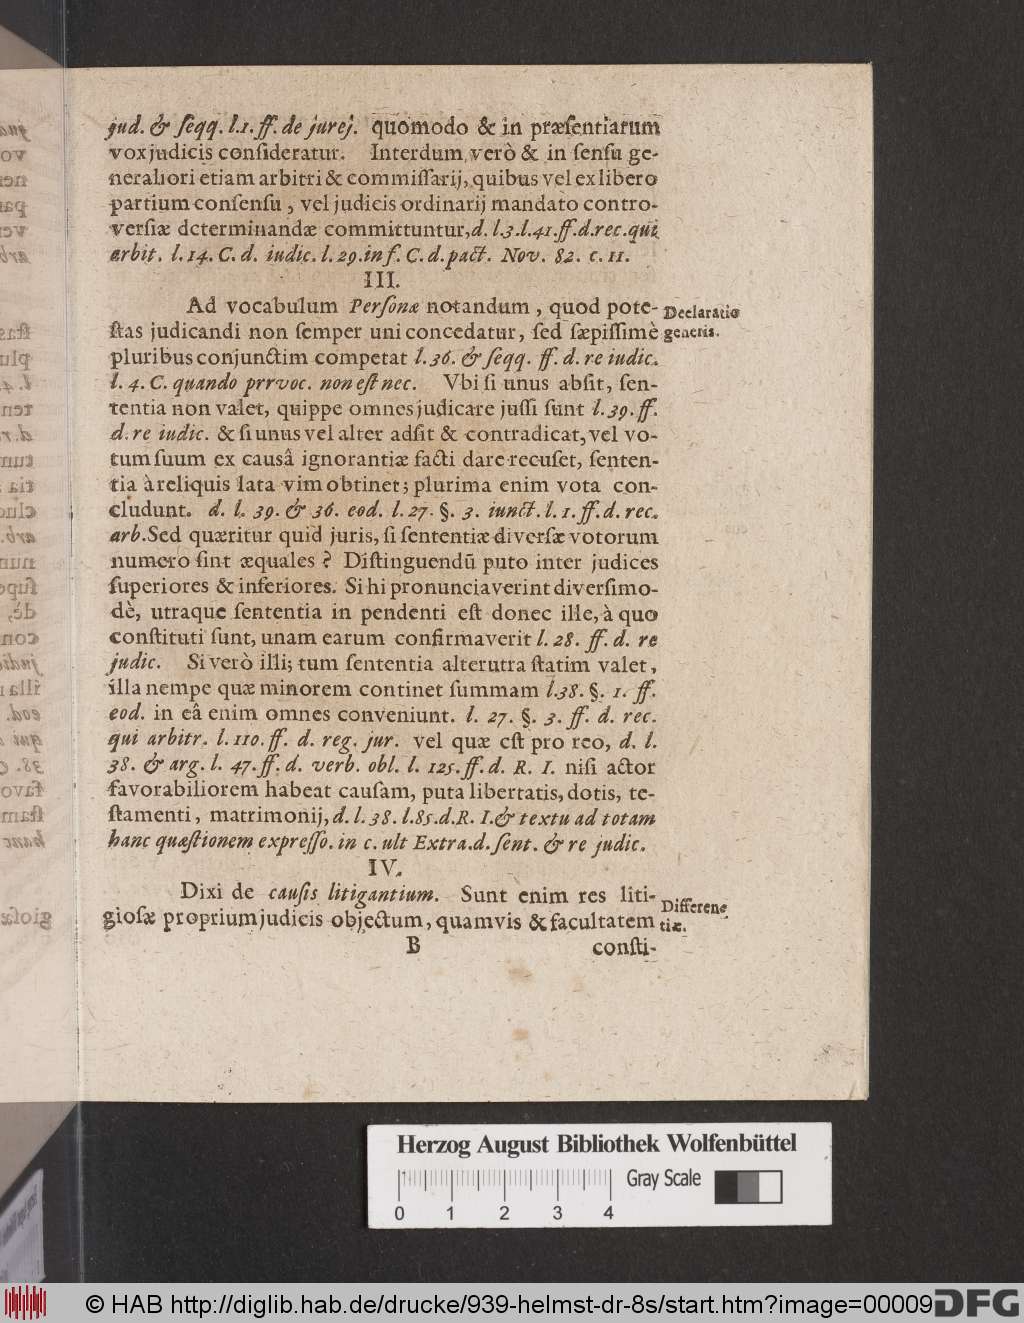 jud. & ſeqq. l.1. ff. de jurej. quomodo & in præſentiarum
vox judicis conſideratur. Interdum verò & in ſenſu ge-
neraliori etiam arbitri & commiſſarij, quibus vel ex libero
partium conſenſu, vel judicis ordinarij mandato contro-
verſiæ determinandæ committuntur, d. l.3.l.41.ff.d.rec.qui
arbit. l.14. C. d. iudic. l. 29. in f. C. d. pact. Nov. 82. c. 11.
III.
Ad vocabulum Perſonæ notandum, quod pote-
Declaratio
ſtas judicandi non ſemper uni concedatur, ſed ſæpiſſimè
generis.
pluribus conjunctim competat l. 36. & ſeqq. ff. d. re iudic.
l. 4. C. quando prrvoc. non eſt nec. Vbi ſi unus abſit, ſen-
tentia non valet, quippe omnes judicare juſſi ſunt l. 39. ff.
d. re iudic. & ſi unus vel alter adſit & contradicat, vel vo-
tum ſuum ex causâ ignorantiæ facti dare recuſet, ſenten-
tia à reliquis lata vim obtinet; plurima enim vota con-
cludunt. d. l. 39. & 36. eod. l. 27. §. 3. iunct. l. 1. ff. d. rec.
arb. Sed quæritur quid juris, ſi ſententiæ diverſæ votorum
numero ſint æquales? Diſtinguendū puto inter judices
ſuperiores & inferiores. Si hi pronunciaverint diverſimo-
dè, utraque ſententia in pendenti eſt donec ille, à quo
conſtituti ſunt, unam earum confirmaverit l. 28. ff. d. re
judic. Si verò illi; tum ſententia alterutra ſtatim valet,
illa nempe quæ minorem continet ſummam l.38. §. 1. ff.
eod. in eâ enim omnes conveniunt. l. 27. §. 3. ff. d. rec.
qui arbitr. l. 110. ff. d. reg. jur. vel quæ eſt pro reo, d. l.
38. & arg. l. 47. ff. d. verb. obl. l. 125. ff. d. R. I. niſi actor
favorabiliorem habeat cauſam, puta libertatis, dotis, te-
ſtamenti, matrimonij, d. l. 38. l.85.d.R. I.& textu ad totam
hanc quæſtionem expreſſo. in c. ult Extra. d. ſent. & re judic.
IV.
Dixi de cauſis litigantium. Sunt enim res liti-
Differen
gioſæ proprium judicis objectum, quamvis & facultatem
tiæ.
B
conſti-
Herzog August Bibliothek Wolfenbüttel
Gray Scale
0 1 2 3 4
© HAB http://diglib.hab.de/drucke/939-helmst-dr-8s/start.htm?image=00009
DFG